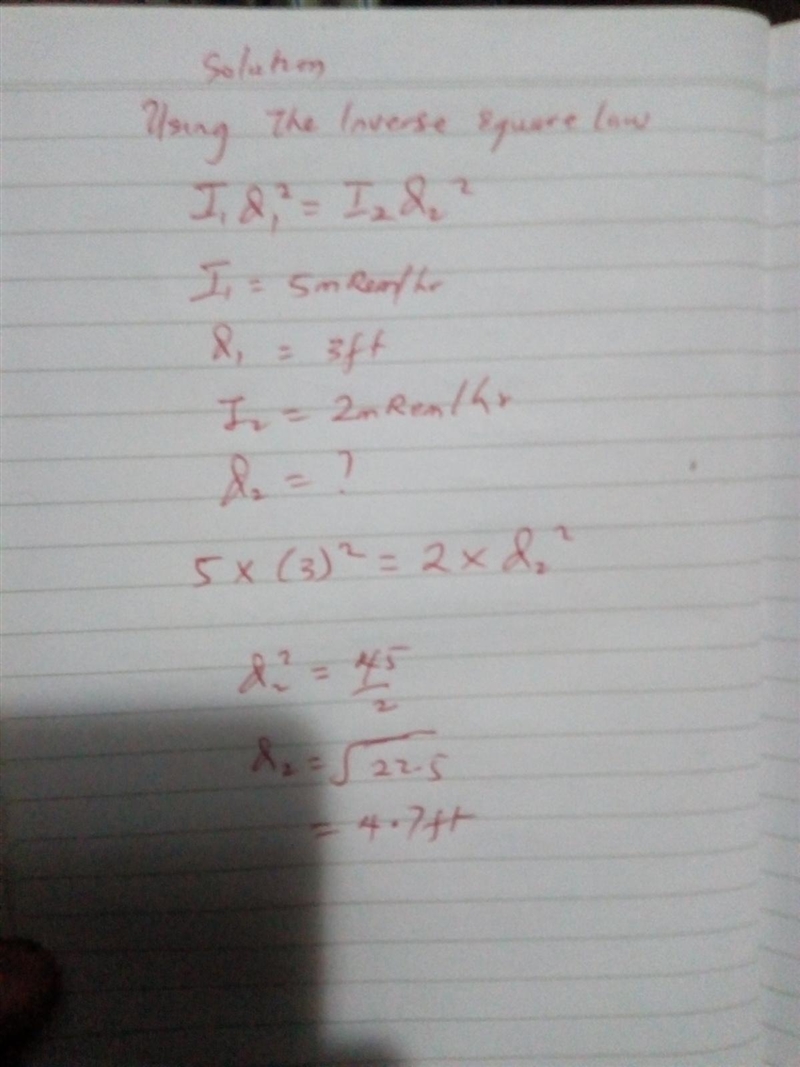 Solution
Using The Inverse square law
I₁ d₁² = I₂ d₂²
I₁ = 5mRem/hr
d₁ = 3ft
I₂ = 2mRem/hr
d₂ = ?
5 × (3)² = 2 × d₂²
d₂² = 45/2
d₂ = √22.5
= 4.7ft